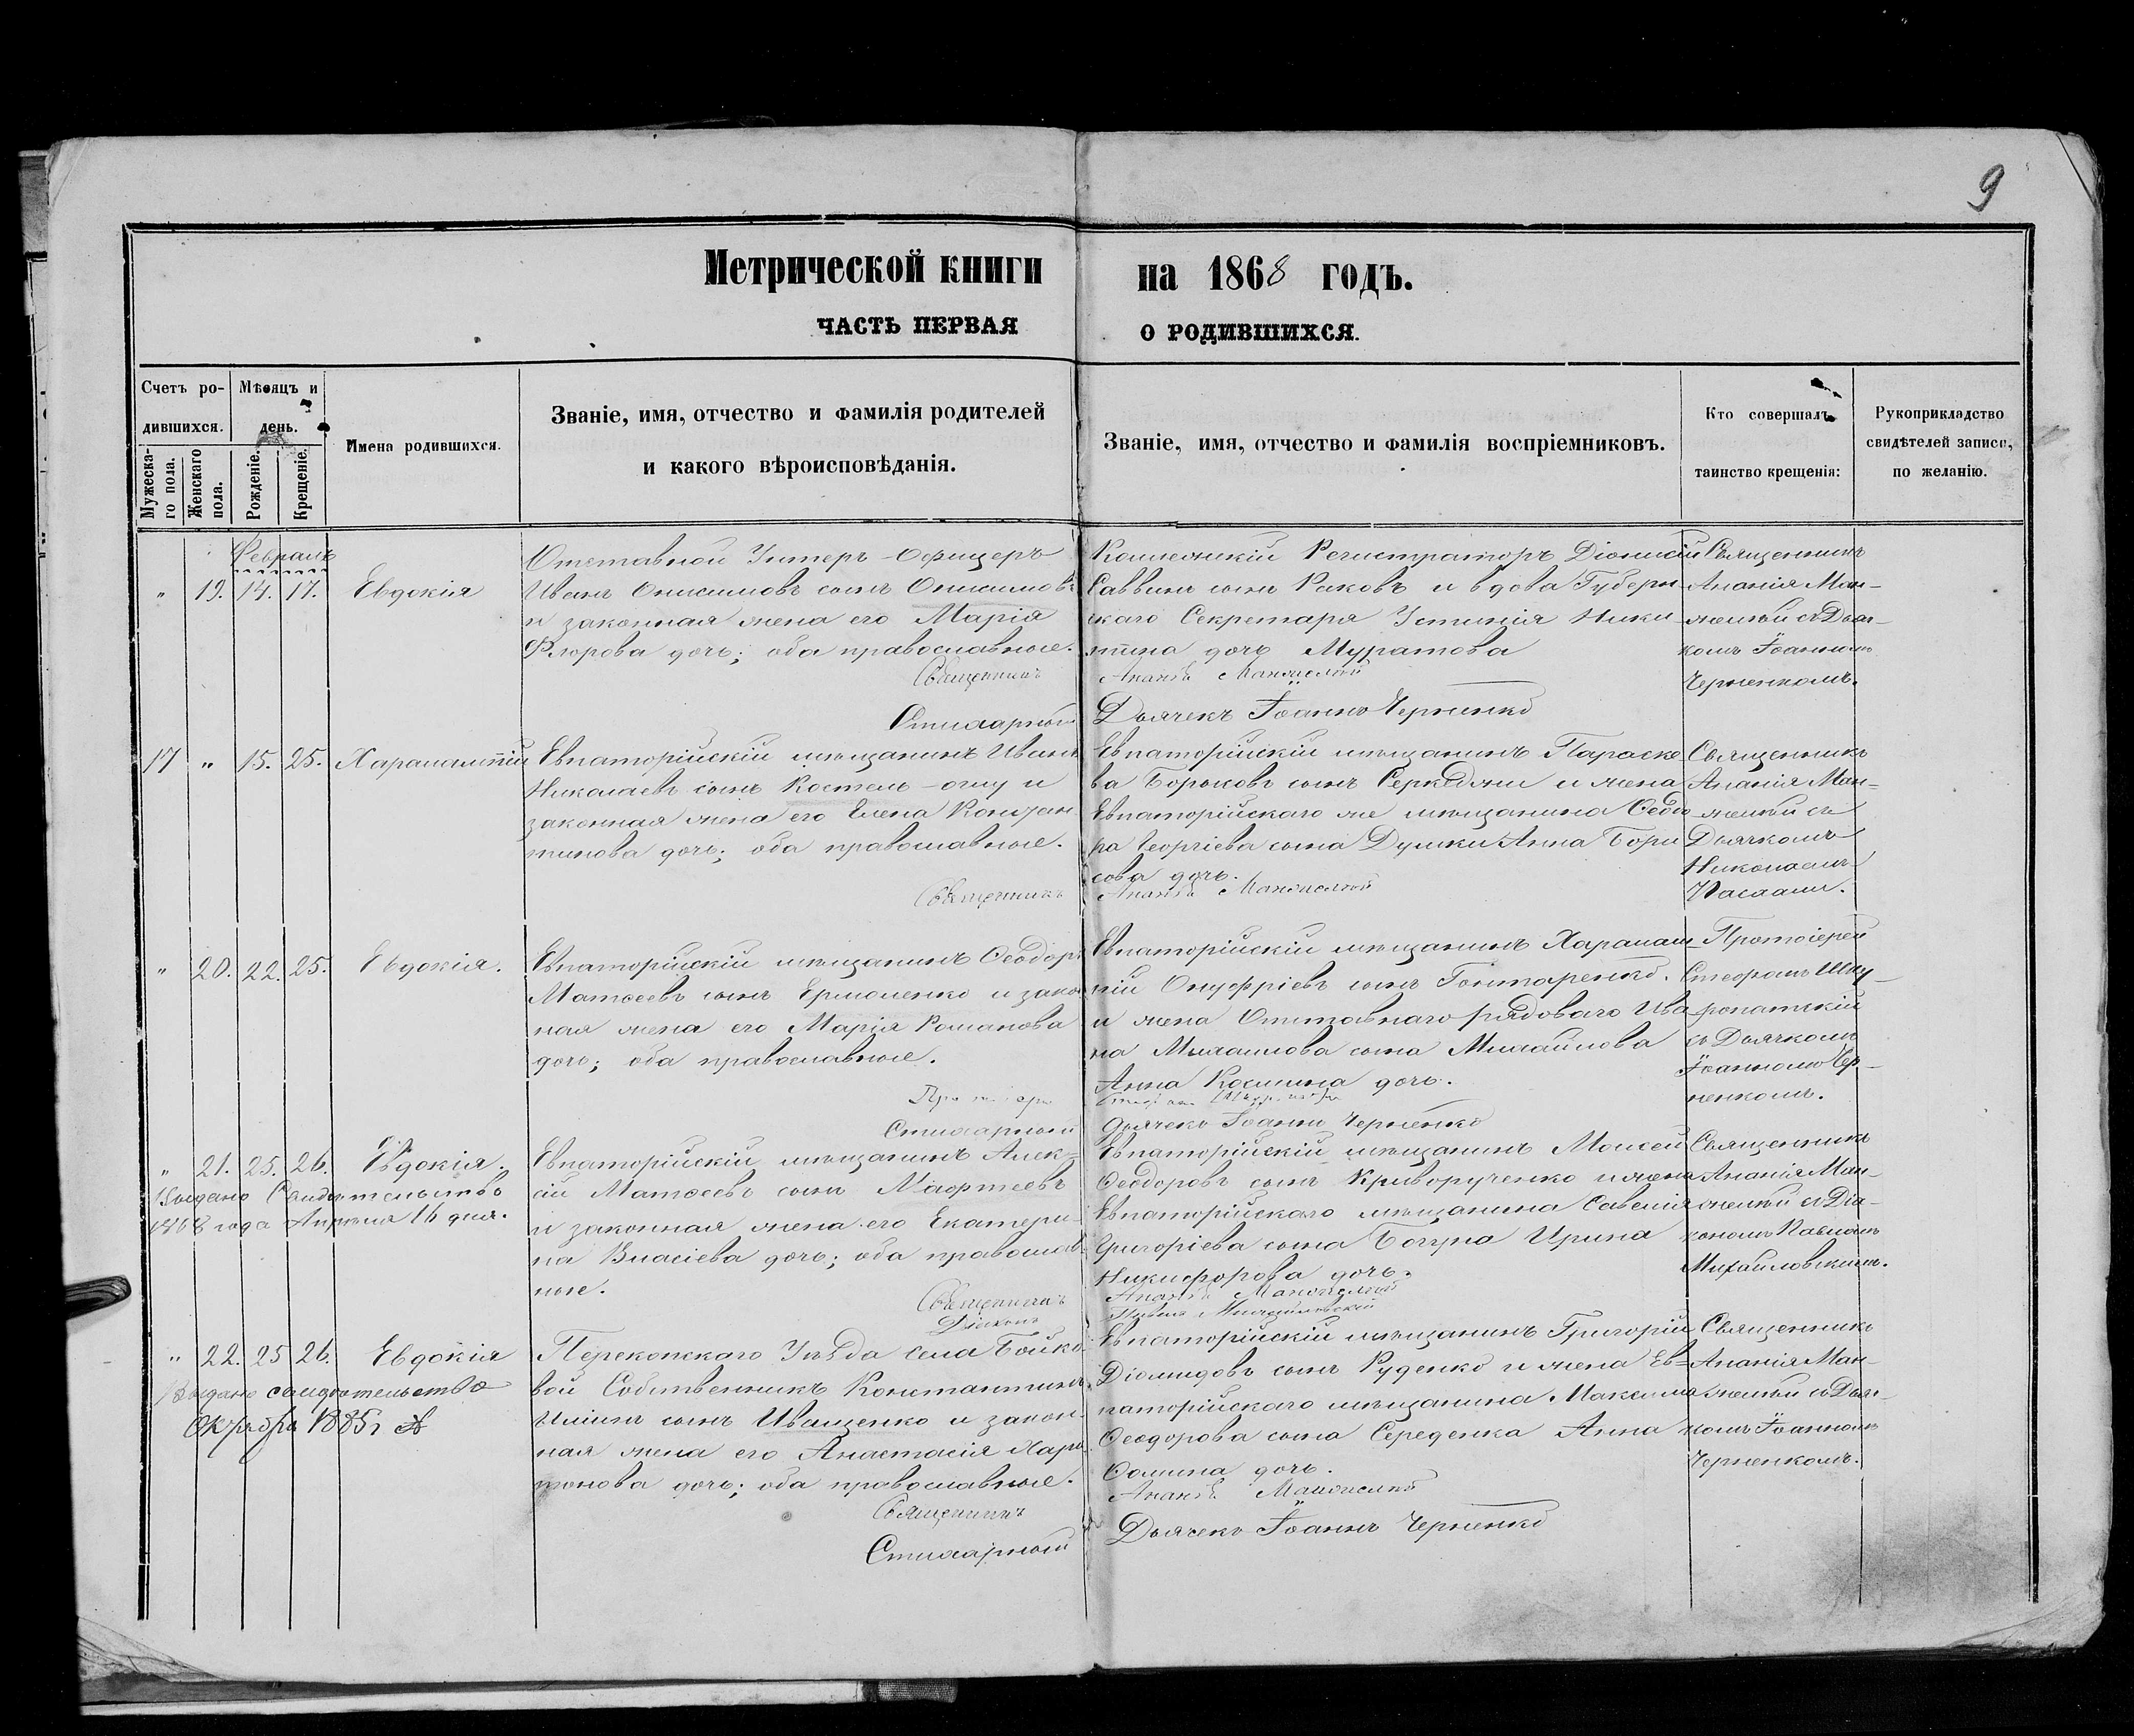 9
Метрической книги на 1868 годъ.
ЧАСТЬ ПЕРВАЯ О РОДИВШИХСЯ.
Счетъ ро-
дившихся.
Мужеска-
го пола.
Женскаго
пола.
Мѣсяцъ и
день.
Рожденіе.
Крещеніе.
Имена родившихся.
Званіе, имя, отчество и фамилія родителей
и какого вѣроисповѣданія.
Званіе, имя, отчество и фамилія воспріемниковъ.
Кто совершалъ
таинство крещенія:
Рукоприкладство
свидѣтелей записи,
по желанію.
Февраль
" 19. 14. 17. Евдокія
Отставной Унтеръ-Офицеръ
Иванъ Онисимовъ сынъ Онисимовъ
и законная жена его Марія
Флорова дочь; оба православные.
Священникъ
Стихарный
Коллежскій Регистраторъ Діонисій
Саввинъ сынъ Раковъ и вдова Губерн
скаго Секретаря Устинія Ники-
тина дочь Муратова
Ананія
Дьячекъ Іоаннъ Черненко
Священникъ
Ананія Ман-
съ Дьяч-
комъ Іоанномъ
Черненкомъ.
17 " 15. 25. Харалампій
Евпаторійскій мѣщанинъ Иванъ
Николаевъ сынъ Костель-оглу и
законная жена его Елена Констан
тинова дочь; оба православные.
Священникъ
Евпаторійскій мѣщанинъ Параске
ва Борисовъ сынъ и жена
Евпаторійскаго же мѣщанина Ѳеодо
ра Георгіева сына Душки Анна Бори
сова дочь.
Ананія
Священникъ
Ананія Ман-
съ
Дьячкомъ
Николаемъ
" 20. 22. 25. Евдокія.
Евпаторійскій мѣщанинъ Ѳеодоръ
Матѳеевъ сынъ Ермоленко и закон
ная жена его Марія Романова
дочь; оба православные.
Стихарный
Евпаторійскій мѣщанинъ Харалам
пій Онуфріевъ сынъ Гонтаренко.
и жена Отставнаго рядоваго Ива
на Михаилова сына Михайлова
Анна Космина дочь.
Дьячекъ Іоаннъ Черненко
Протоіерей
Стефанъ Шку-
ропатскій
съ Дьячкомъ
Іоанномъ Чер-
ненкомъ.
" 21. 25. 26. Евдокія.
Выдано Свидѣтельство
1868 года Апрѣля 16 дня.
Евпаторійскій мѣщанинъ Алек-
сій Матѳеевъ сынъ
и законная жена его Екатери-
на Власіева дочь; оба православ-
ные.
Священникъ
Діаконъ
Евпаторійскій мѣщанинъ Моисей
Ѳеодоровъ сынъ Криворученко и жена
Евпаторійскаго мѣщанина Савелія
Григоріева сына Богуна Ирина
Никифорова дочь.
Ананія
Павелъ Михайловскій
Священникъ
Ананія Ман-
съ Діа-
кономъ Павломъ
Михайловскимъ.
" 22. 25 26. Евдокія
Выдано свидѣтельство
Октября 1885 г
Перекопскаго Уѣзда села Бойко-
вой Собственникъ Константинъ
Иліинъ сынъ Иващенко и закон-
ная жена его Анастасія Хари-
тонова дочь; оба православные.
Священникъ
Стихарный
Евпаторійскій мѣщанинъ Григорій
Діомидовъ сынъ Руденко и жена Ев-
паторійскаго мѣщанина Максима
Ѳеодорова сына Середенка Анна
Ѳомина дочь.
Ананія
Дьячекъ Іоаннъ Черненко
Священникъ
Ананія Ман-
съ Дьяч-
комъ Іоанномъ
Черненкомъ.